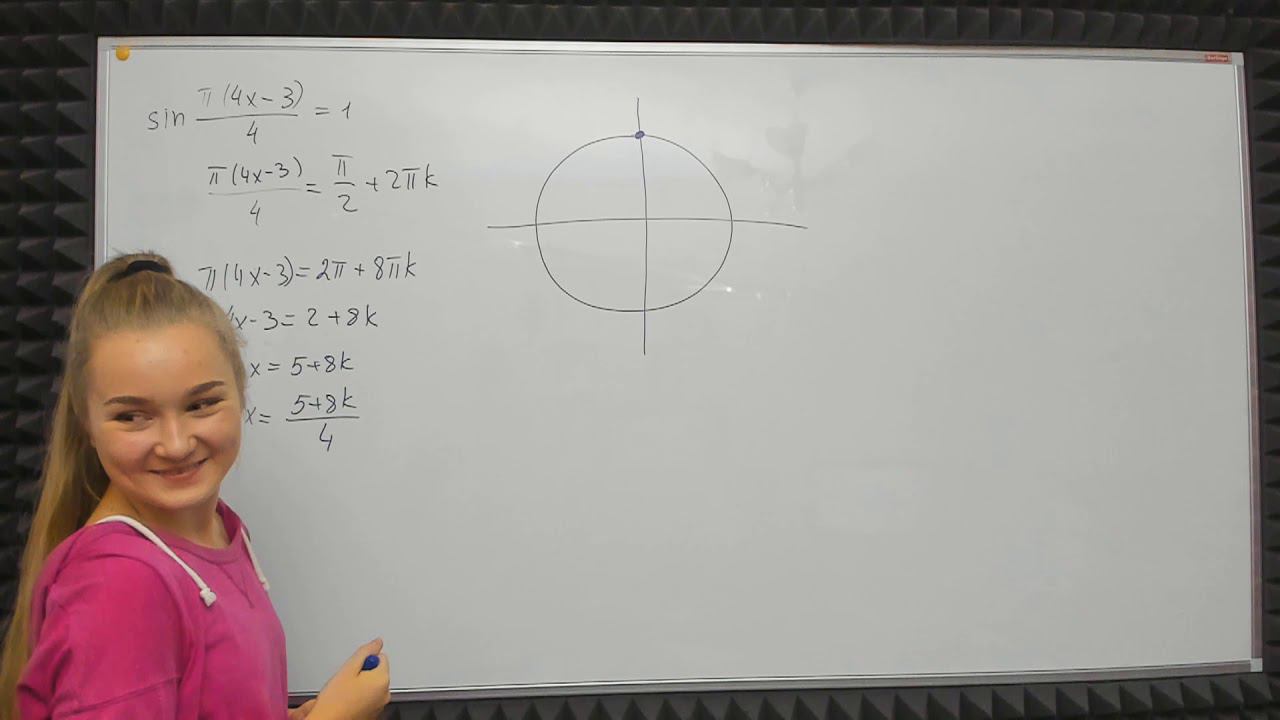 sin π(4x-3)/4 = 1
π(4x-3)/4 = π/2 + 2πk
π(4x-3) = 2π + 8πk
4x-3 = 2 + 8k
x = 5+8k
x = (5+8k)/4